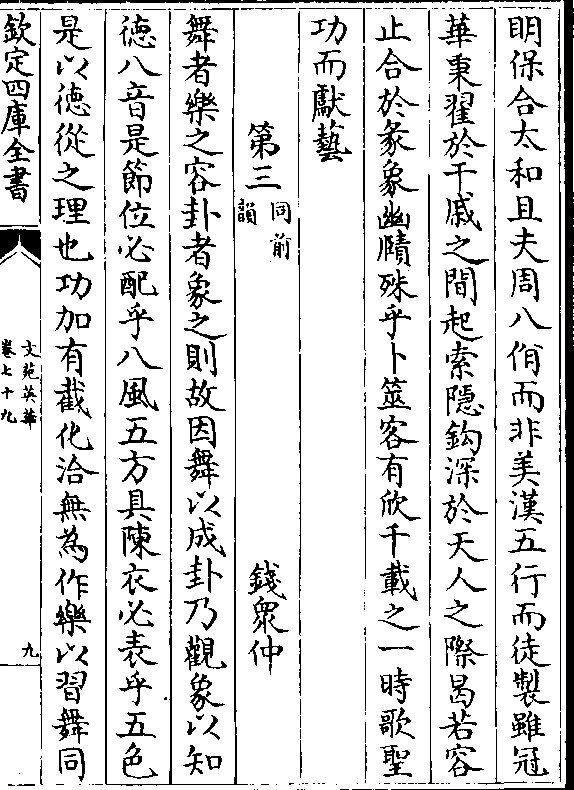 明保合太和且夫周八佾而非美漢五行而徒製雖冠
華秉翟於干戚之間起索隱鈎深於天人之際曷若容
止合於彖象幽賾殊乎卜筮客有欣千載之一時歌聖
功而獻藝
第三 同前韻 錢衆仲
舞者樂之容卦者象之則故因舞以成卦乃觀象以知
徳八音是節位必配乎八風五方具陳衣必表乎五色
是以徳從之理也功加有截化洽無為作樂以習舞同
欽定四庫全書
文苑英華
卷七十九
九